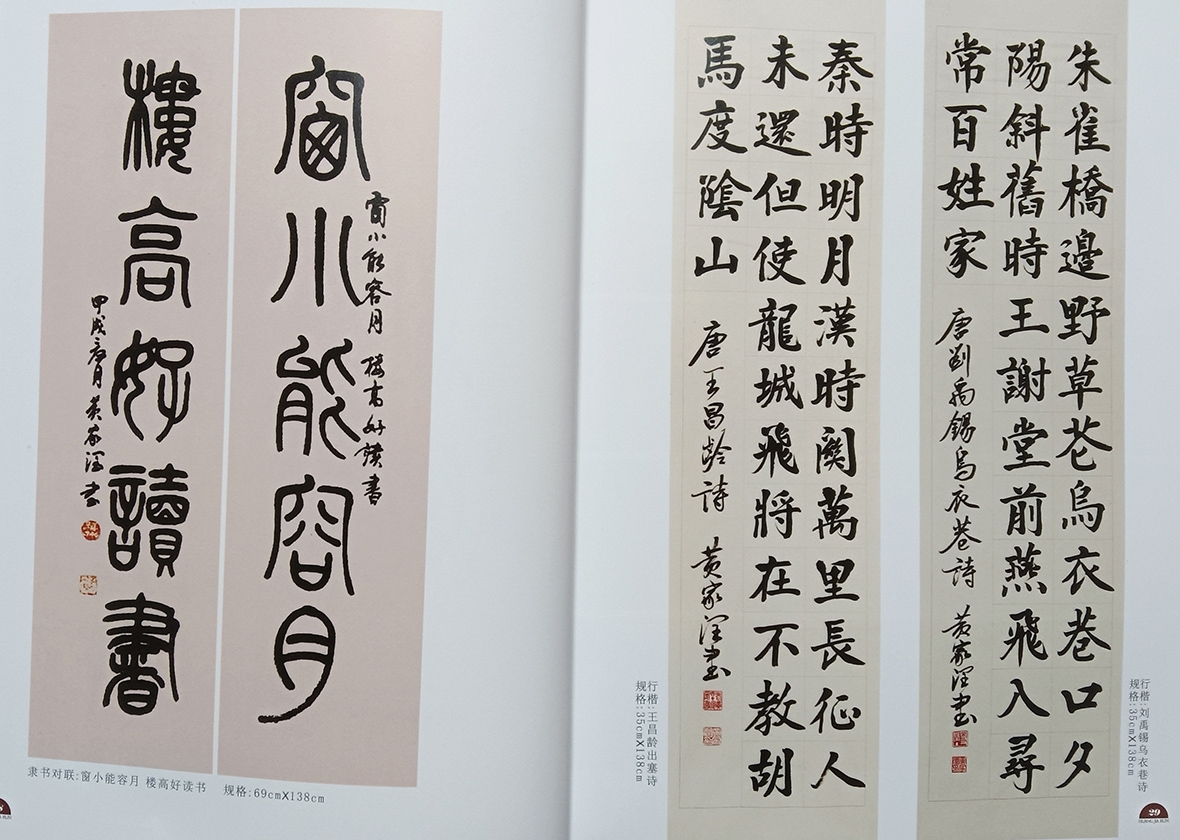 窗小能容月
窗小能容月 楼高好读書
樓高好讀書
甲戌 月 黄家润书
隶书对联:窗小能容月 楼高好读书 规格:69cmX138cm
秦時明月漢時關萬里長征人
未還但使龍城飛將在不教胡
馬度陰山
唐王昌龄詩 黄家润书
行楷:王昌龄出塞诗
规格:35cmX138cm
朱雀橋邊野草花烏衣巷口夕
陽斜舊時王謝堂前燕飛入尋
常百姓家
唐劉禹锡烏衣巷詩 黄家润书
行楷:刘禹锡乌衣巷诗
规格:35cmX138cm
29